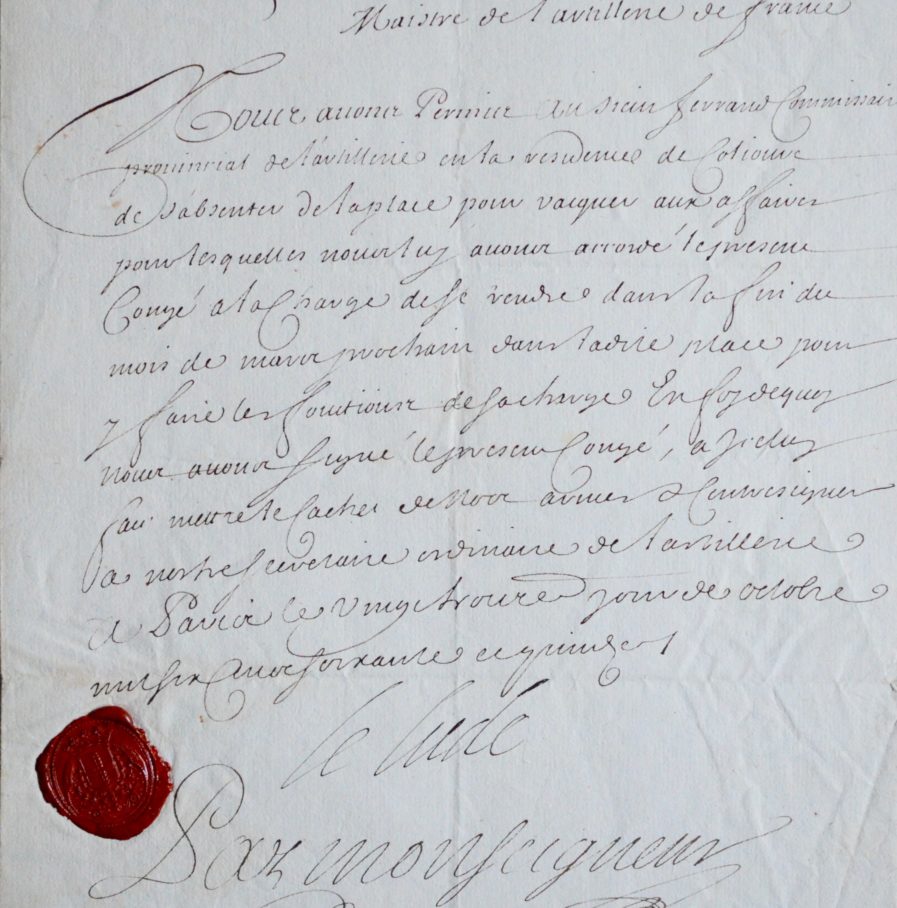 Maistre de l'artillerie de france
Nous avons Permis au sieur ferrand Commissaire
provincial de l'artillerie en la residence de Colioure
de s'absenter de la place pour vacquer aux affaires
pour lesquelles nous luy avons accordé le present
Congé a la charge de se rendre dans la fin du
mois de mars prochain dans ladite place pour
y faire les fonctions de sa charge En foy de quoy
nous avons signé le present Congé, a iceluy
fait mettre le Cachet de Noz armes & Contresigner
a nostre secretaire ordinaire de l'artillerie
A Paris le Vingt jour de octobre
mil six Cens soixante et quinze
le lude
Par monseigneur